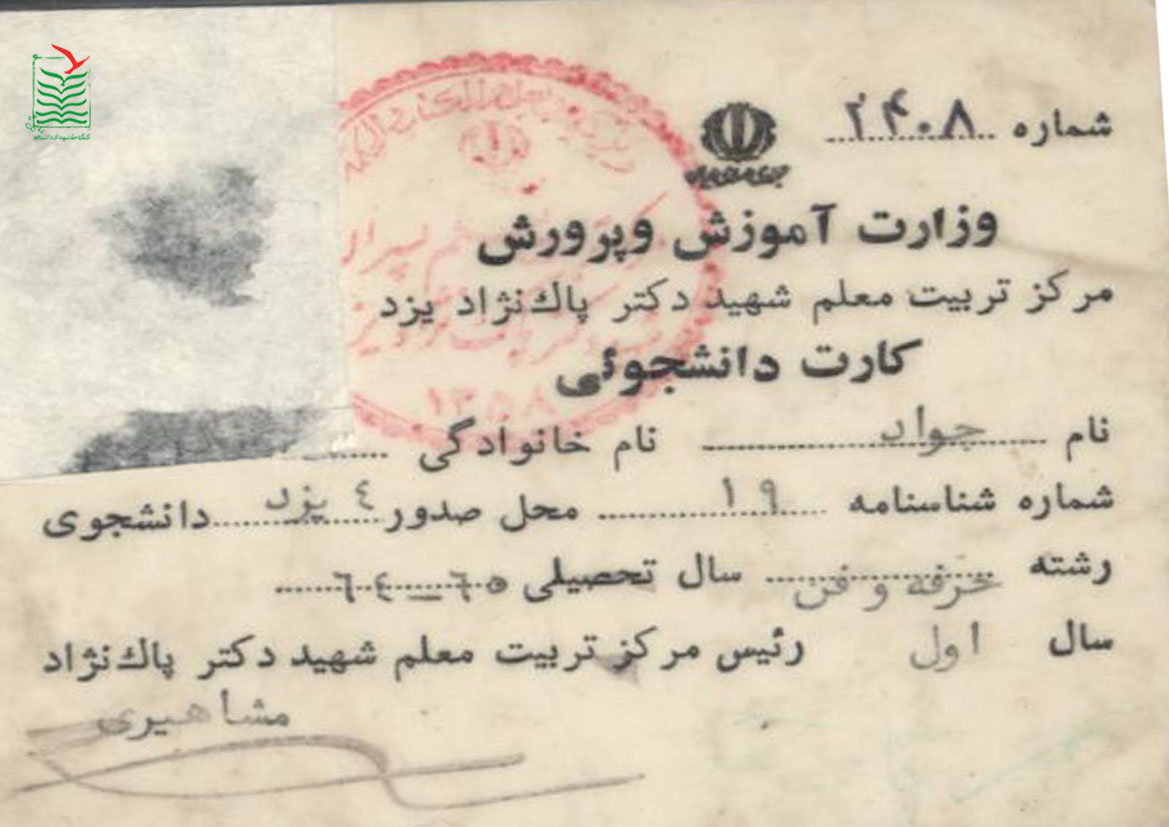 شماره ۲۴۰۸
وزارت آموزش وپرورش
مرکز تربیت معلم شهید دکتر پاك‌نژاد یزد
کارت دانشجوئی
نام جواد نام خانوادگی
شماره شناسنامه ۱۹ محل صدور ٤ یزد دانشجوی
رشته حرفه و فن سال تحصیلی ٦٥ــ٦٤
سال اول رئیس مرکز تربیت معلم شهید دکتر پاك‌نژاد
مشاهیری
۱۳۵۸